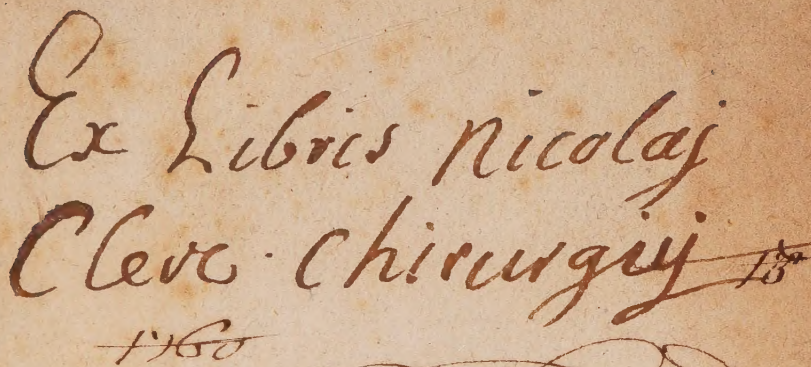 Ex Libris Nicolaj
Clerc chirurgij 13ª
1760